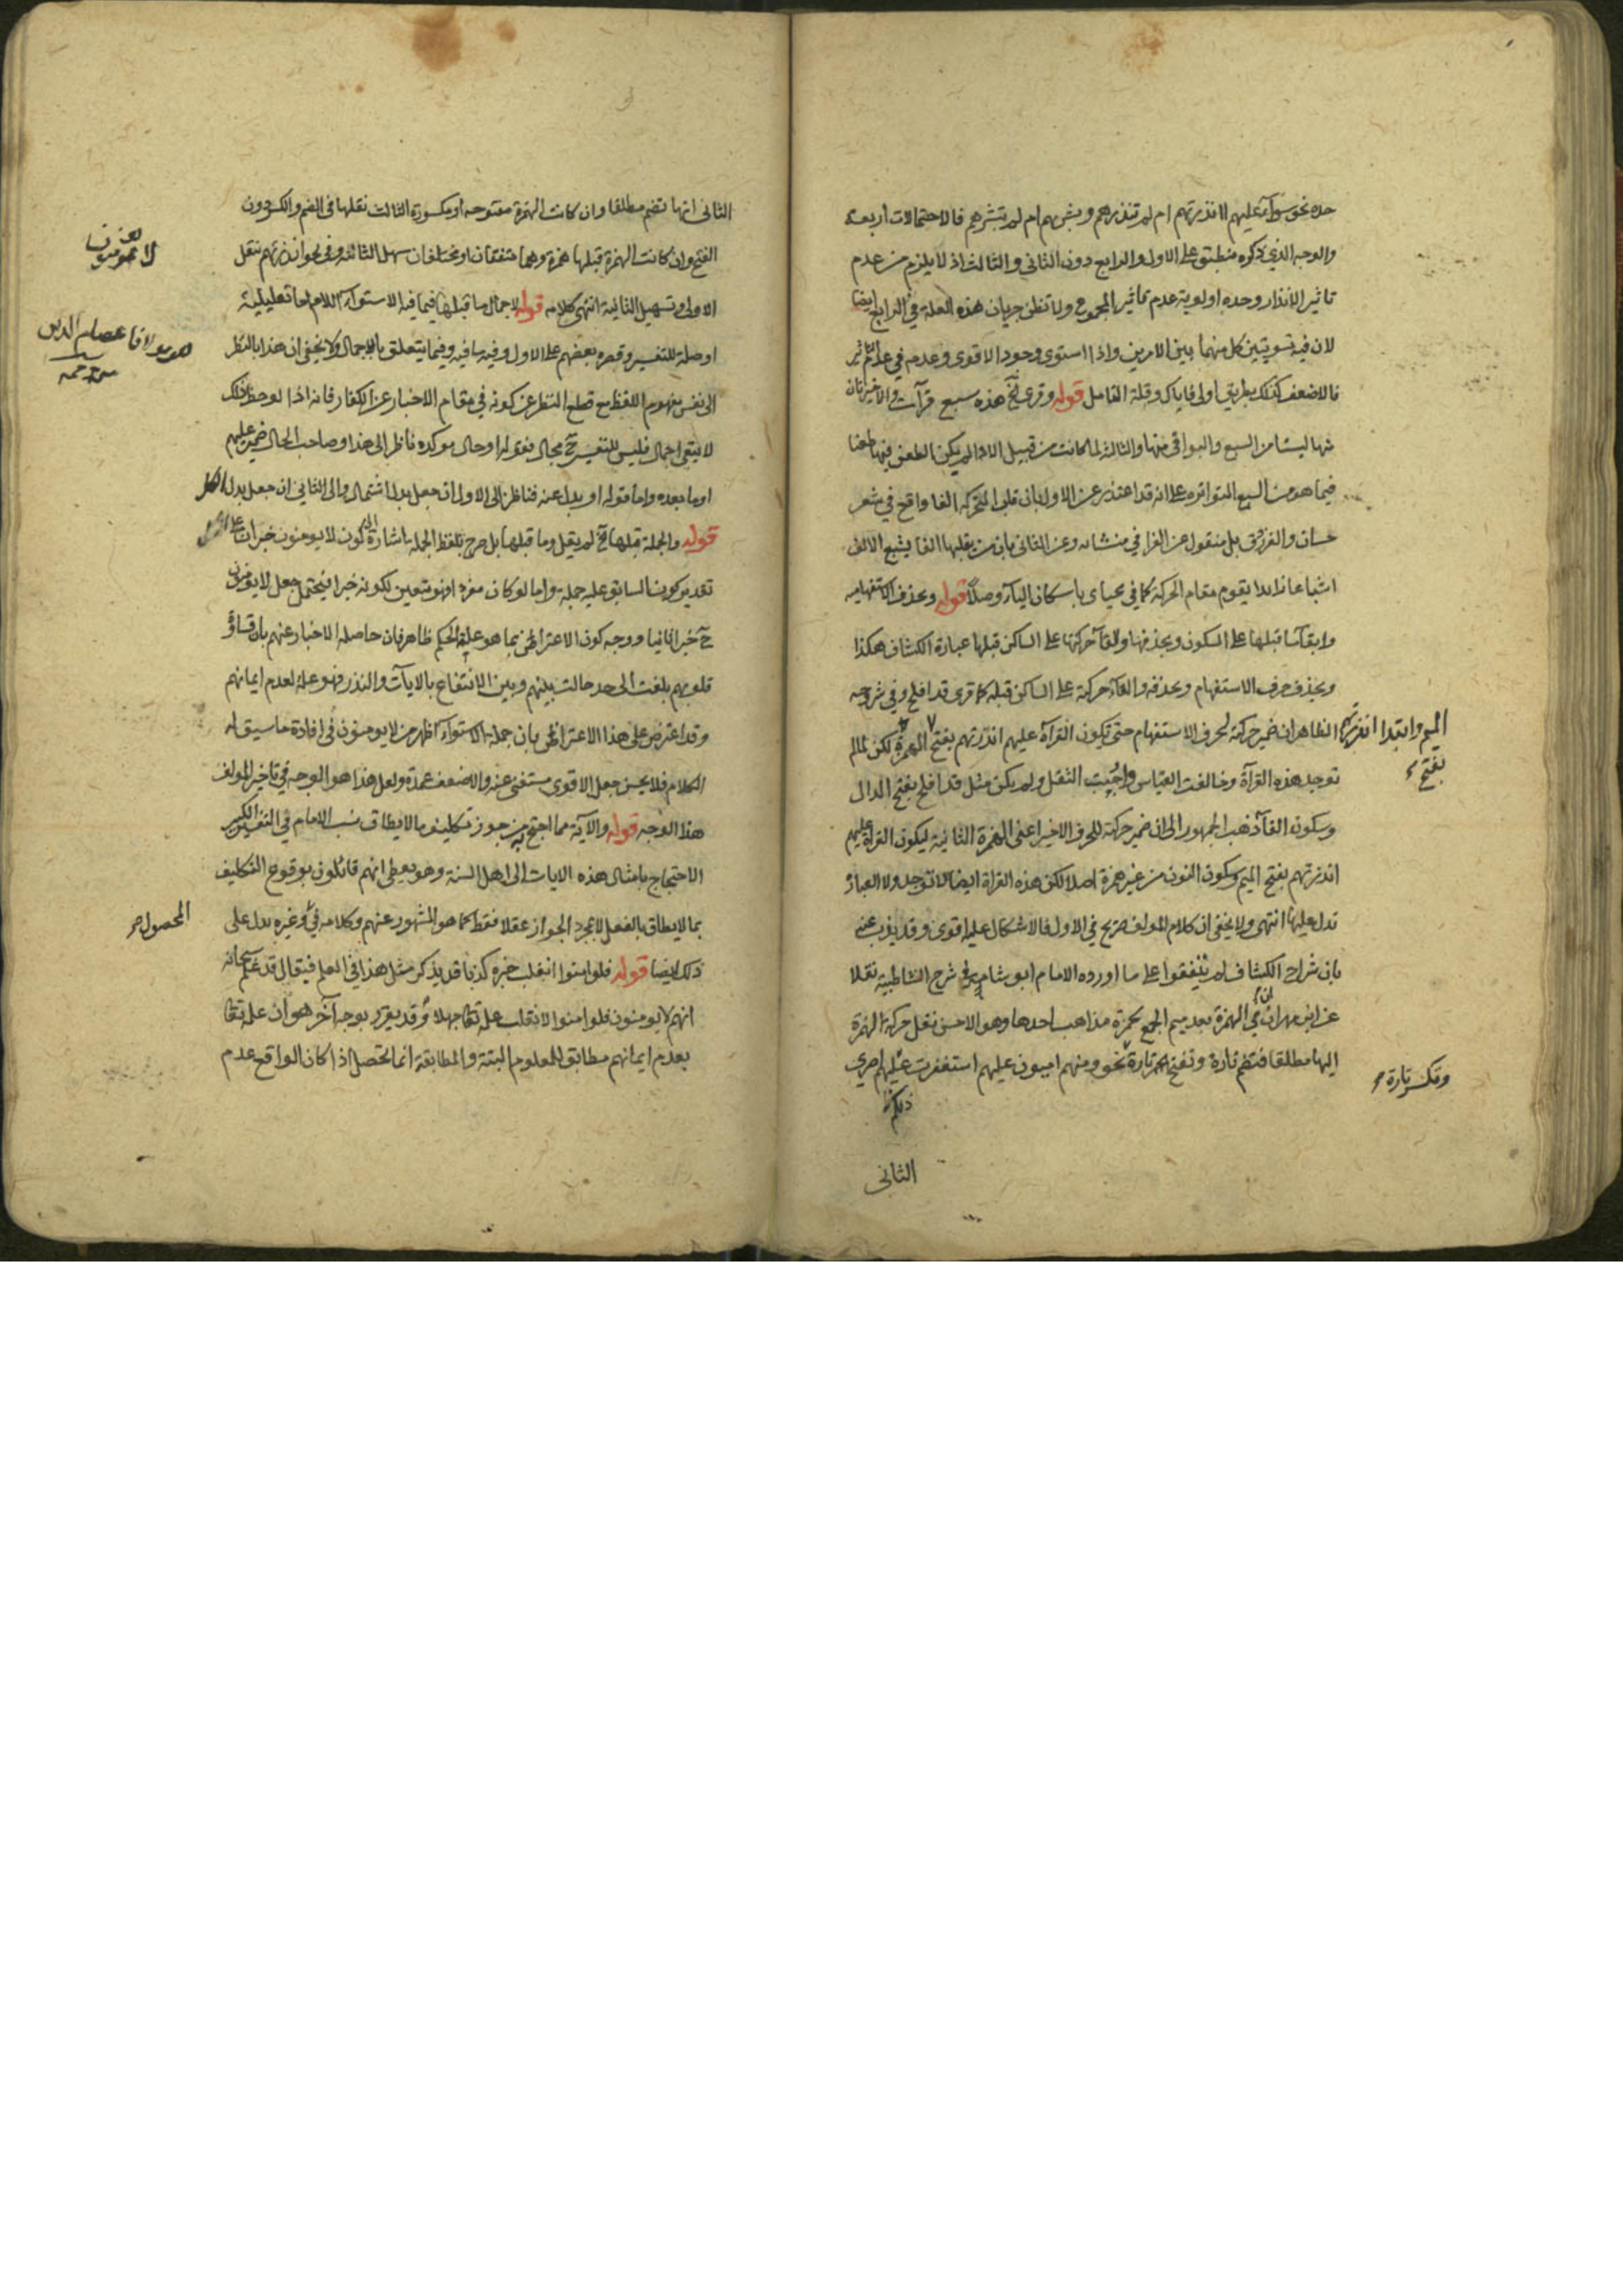 حده نحو سواء عليهم أانذرتهم ام لم تنذرهم وبشرهم ام لم تبشرهم فالاحتمالات اربعة
والوجه الذي ذكره منطبق على الاول والرابع دون الثاني والثالث اذ لا يلزم من عدم
تاثير الانذار وحده اولوية عدم تاثير المجموع ولا تظن جريان هذه العلة في الرابع ايضا
لان فيه تسويتين كل منهما بين الامرين واذا استوى وجود الاقوى وعدمه في عدم التاثير
فالاضعف كذلك بطريق اولى فاياك وقلة التامل قوله وقرئ الخ هذه سبع قرآت والاخيرتان
منها ليستا من السبع والبواقي منها والثالثة لما كانت من قبيل الاداء لم يكن الطعن فيها طعنا
فيما هو من السبع المتواتره على انه قد اعتذر عن الاول بان قلب المتحركه الفا واقع في شعر
حسان والفرزدق بل منقول عن الفرا في منساته وعن الثاني بان من يقلبها الفا يشبع الالف
اشباعا زائدا يقوم مقام الحركة كما في محياى باسكان الياء وصلا قوله وبحذف الاستفهاميه
وابقآ ما قبلها على السكون وبحذفها والقآ حركتها على الساكن قبلها عبارة الكشاف هكذا
وبحذف حرف الاستفهام وبحذفه والقآء حركته على الساكن قبله كما قرى قد افلح وفي شروحه
الظاهر ان ضمير حركته لحرف الاستفهام حتى تكون القرآة عليهم انذرتهم بفتح الهمزة لكن لما لم
توجد هذه القرآة وخالفت القياس واجبت الثقل ولم يكن مثل قد افلح بفتح الدال
وسكون الفآ ذهب الجمهور الى ان ضمير حركته للحرف الاخير اعنى الهمزة الثانية ليكون القرآة عليهم
انذرتهم بفتح الميم وسكون النون من غير همزة اصلا لكن هذه القرآة ايضا لا توجد ولا العبارة
تدل عليها انتهى ولا يخفى ان كلام المولف صريح في الاول فالاشكال عليه اقوى وقد يذب عنه
بان شراح الكشاف لم يتفقوا على ما اورده الامام ابو شامة في شرح الشاطبية نقلا
عن ابن مهران ان في الهمزة بعد ميم الجمع لحمزة مذاهب احدها وهو الاحسن نقل حركة الهمزة
اليها مطلقا فتضم تارة وتفتح تارة نحو ومنهم اميون عليهم استغفرت عليهم اصرى
ذلكم
الثاني
الميم وابتدا انذرتهم
بفتح
وتكسر تارة
الثاني انها تضم مطلقا وان كانت الهمزة مفتوحه او مكسورة الثالث نقلها في الضم والكسر دون
الفتح وان كانت الهمزة قبلها همزة وهما متفقتان او مختلفتان سهل الثانية وفي نحو أانذرتهم ينقل
الاولى وتسهيل الثانية انتهى كلامه قوله لاجمال ما قبلها فيما فيه الاستواء اللام اما تعليلية
او صلة للتفسير وقصره بعضهم على الاول وفيه ما فيه وفيما يتعلق بالاجمال ولا يخفى ان هذا بالنظر
الى نفس مفهوم اللفظ مع قطع النظر عن كونه في مقام الاخبار عن الكفار فانه اذا لوحظ ذلك
لا يبقى اجمال فليس للتفسير ح مجال فقوله او حال موكده ناظر الى هذا وصاحب الحال ضمير عليهم
او ما بعده واما قوله او بدل عنه فناظر الى الاول ان جعل بدل اشتمال والى الثاني ان جعل بدل الكل
قوله والجملة قبلها الخ لم يقل وما قبلها بل صرح بلفظ الجملة اشارة الى كون لا يومنون خبر ان على
تقدير كون السابق عليه جملة واما لو كان مفردا فهو متعين لكونه خبرا فيحتمل جعل لا يومنون
ح خبرا ثانيا ووجه كون الاعتراض بما هو علة الحكم ظاهر فان حاصله الاخبار عنهم بان قساوة
قلوبهم بلغت الى حد حالت بينهم وبين الانتفاع بالايآت والنذر فهو علة لعدم ايمانهم
وقد اعترض على هذا الاعتراض بان جملة الاستواء اظهر من لا يومنون في افادة ما سيق له
الكلام فلا يحسن جعل الاقوى مستغنى عنه والاضعف عمدة ولعل هذا هو الوجه في تاخير المولف
هذا الوجه قوله والآية مما احتج به من جوز تكليف ما لا يطاق نسب الامام في التفسير الكبير
الاحتجاج بامثال هذه الايات الى اهل السنة وهو يعطي انهم قائلون بوقوع التكليف
بما لا يطاق بالفعل لا بمجرد الجواز عقلا فقط كما هو المشهور عنهم وكلامه في وغيره يدل على
ذلك ايضا قوله فلو امنوا انقلب خبره كذبا قد يذكر مثل هذا في العلم فيقال قد علم سبحانه
انهم لا يومنون فلو امنوا لانقلب علمه تعالى جهلا وقد يقرر بوجه آخر هو ان علمه تعالى
بعدم ايمانهم مطابق للمعلوم البتة والمطابقة انما تحصل اذا كان الواقع عدم
لا يومنون
مولانا عصام الدين
المحصول